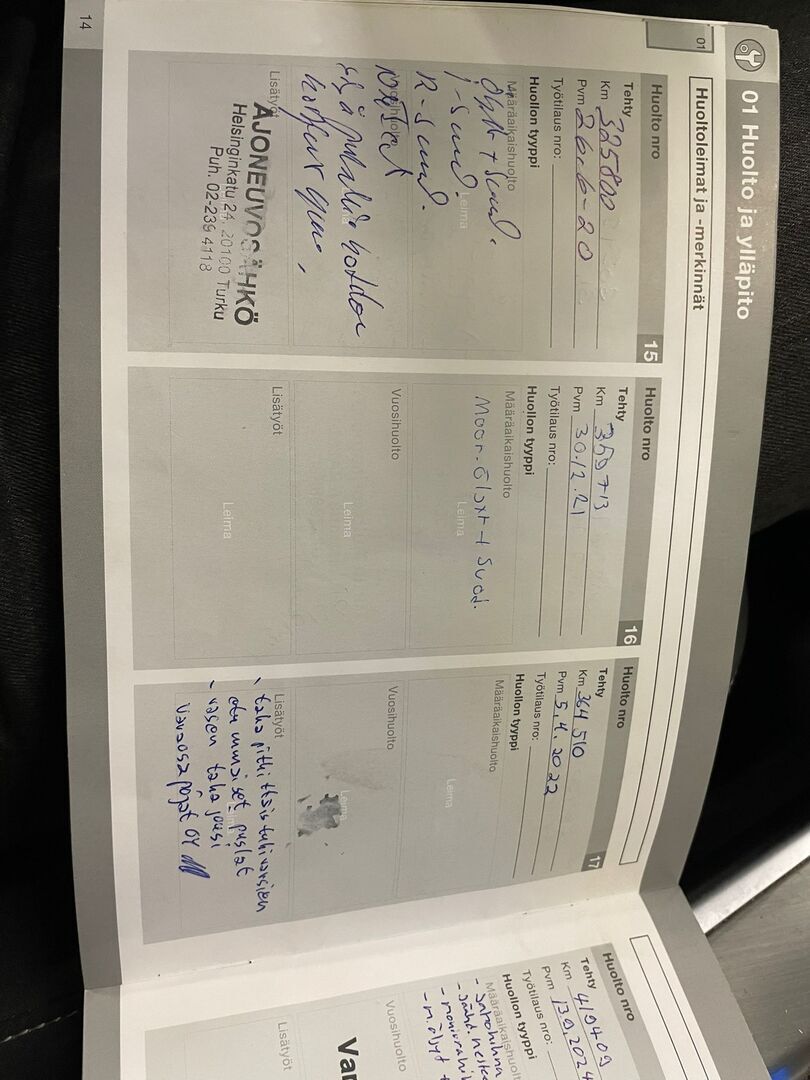 01 Huolto ja ylläpito
01
Huoltoleimat ja -merkinnät
Huolto nro
15
Tehty
Km 325800
Pvm 26.6-20
Työtilaus nro:
Huollon tyyppi
Määräaikaishuolto
Leima
öljyt + suod.
i-suod.
R-suod.
Vuosihuolto
Leima
Lisätyöt
AJONEUVOSÄHKÖ
Helsinginkatu 24, 20100 Turku
Puh. 02-236 4118
Huolto nro
16
Tehty
Km 350713
Pvm 30.12.21
Työtilaus nro:
Huollon tyyppi
Määräaikaishuolto
Leima
Moor.öljyt + Suod.
Vuosihuolto
Leima
Lisätyöt
Leima
Huolto nro
17
Tehty
Km 364 510
Pvm 5.4.2022
Työtilaus nro:
Huollon tyyppi
Määräaikaishuolto
Leima
Vuosihuolto
Leima
Lisätyöt
Leima
- taka pitkittäistukivarsien
etummaiset puslat
- vasen taka jousi
Varaosapojat OY
14
Huolto nro
Tehty
Km 410409
Pvm 13.9.2024
Työtilaus nro:
Huollon tyyppi
Määräaikaishuolto
- jakohihna
- jäähd.neste
- moniurahih
- m.öljyt +
Vuosihuolto
Var
Lisätyöt